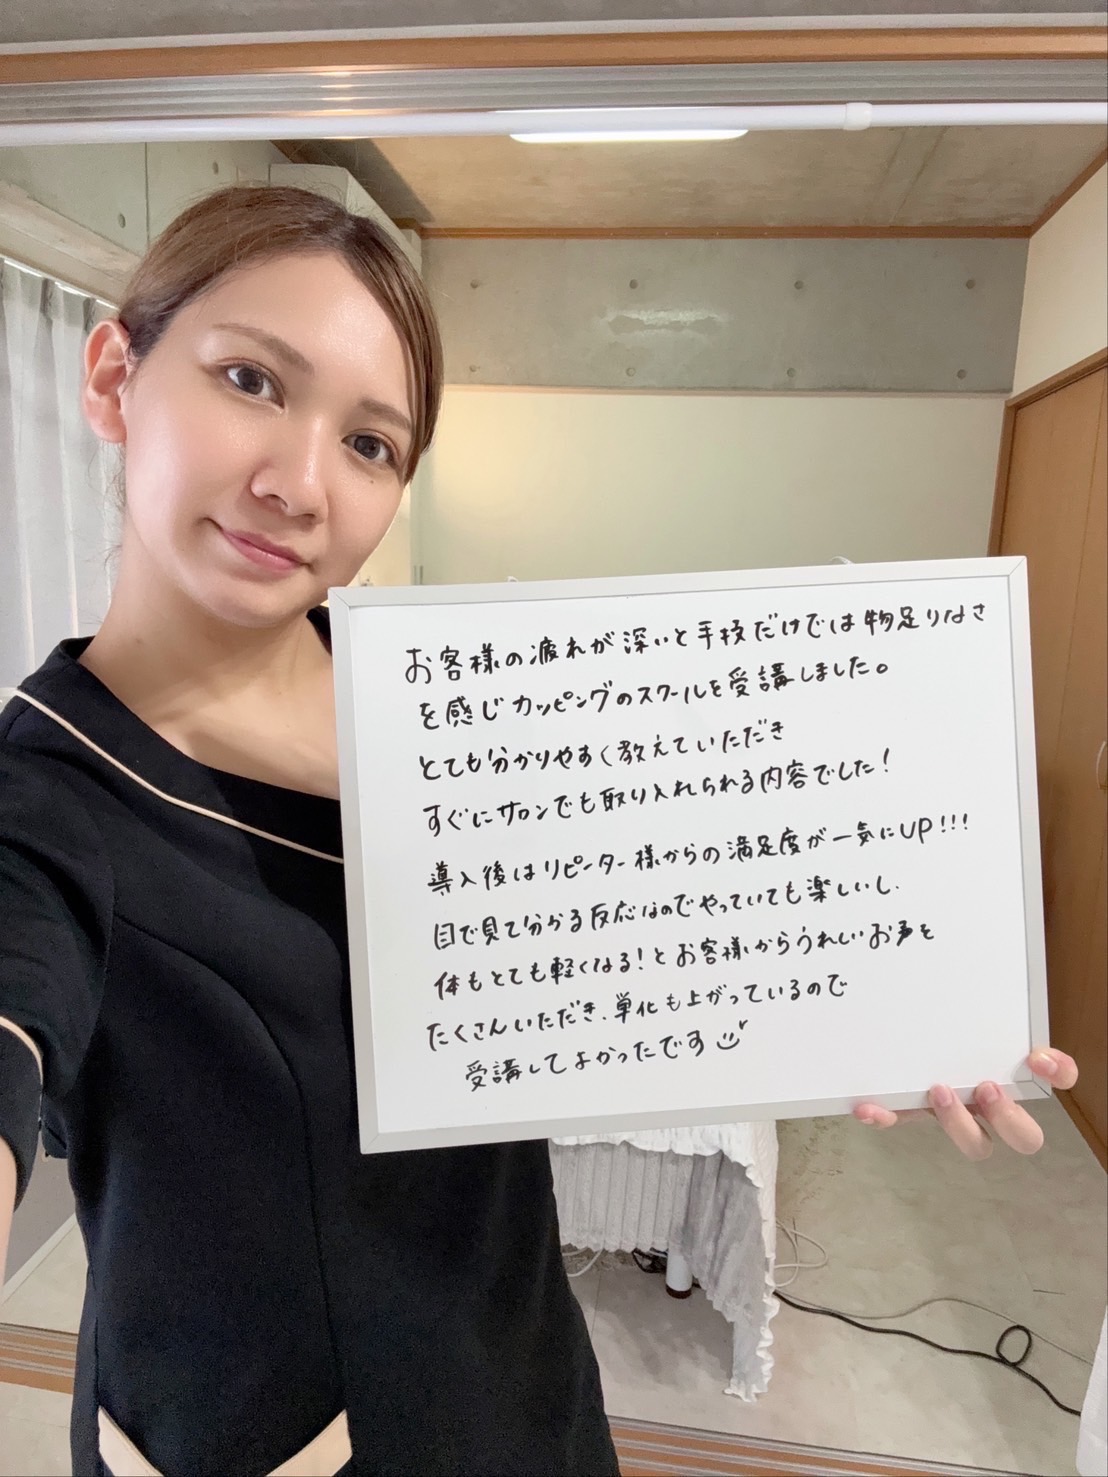 お客様の疲れが深いと手技だけでは物足りなさ
を感じカッピングのスクールを受講しました。
とても分かりやすく教えていただき
すぐにサロンでも取り入れられる内容でした！
導入後はリピーター様からの満足度が一気にUP!!!
目で見て分かる反応なのでやっていても楽しいし、
体もとても軽くなる！とお客様からうれしいお声を
たくさんいただき、単化も上がっているので
受講してよかったです